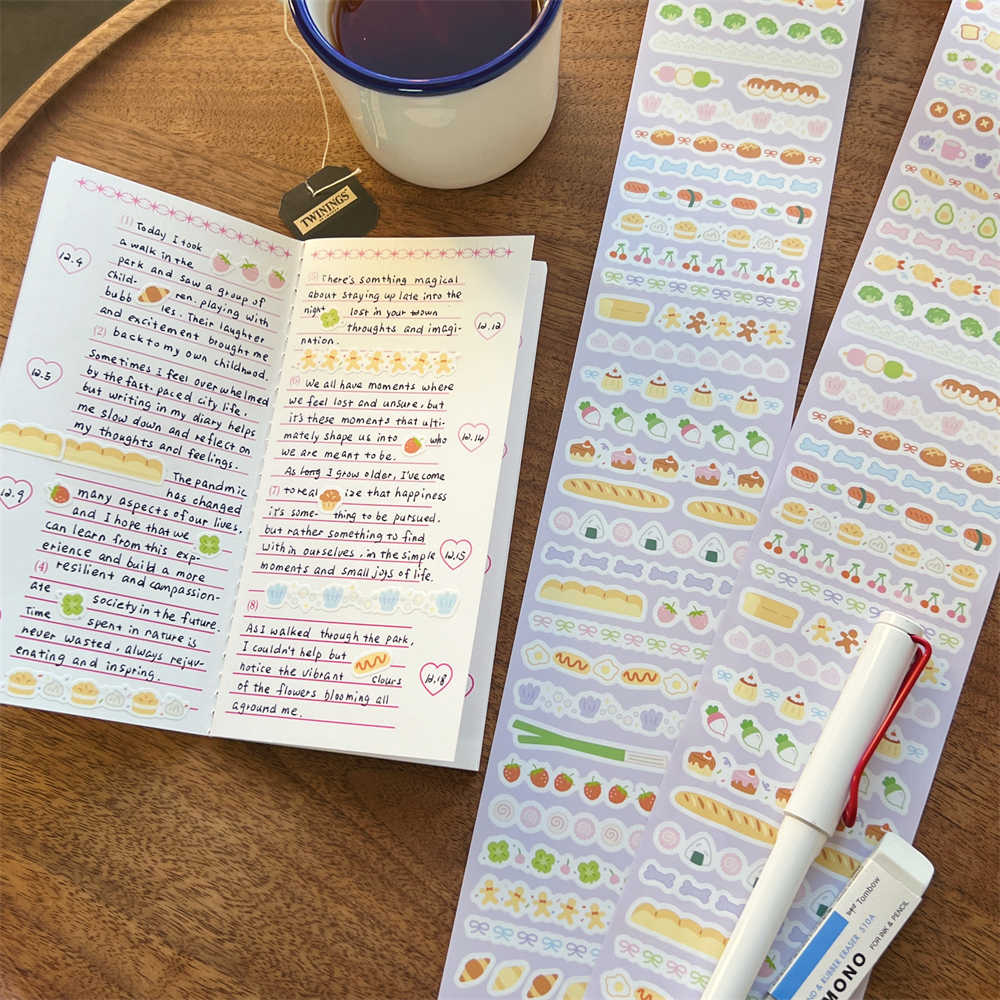 TWININGS
(1) Today I took
a walk in the
park and saw a group of
child- ren, playing with
bubb les. Their laughter
and excitement brought me
(2) back to my own childhood.
Sometimes I feel overwhelmed
by the fast-paced city life,
but writing in my diary helps
me slow down and reflect on
my thoughts and feelings.
The pandmic
has changed
many aspects of our lives,
and I hope that we
can learn from this exp-
erience and build a more
(4) resilient and compassion-
ate society in the future.
Time spent in nature is
never wasted, always rejuv-
enating and inspring.
12.4
12.5
12.9
(5) There's somthing magical
about staying up late into the
night lost in your own
thoughts and imagi-
nation.
(6) We all have moments where
we feel lost and unsure, but
it's these moments that ulti-
mately shape us into who
we are meant to be.
As long I grow older, I've come
(7) to real ize that happiness
it's some- thing to be pursued,
but rather something to find
within ourselves, in the simple
moments and small joys of life.
(8)
As I walked through the park,
I couldn't help but
notice the vibrant clours
of the flowers blooming all
aground me.
12.12
12.14
12.15
12.18
Tombow
ND & RUBBER ERASER 510A
MONO
FOR INK & PENCIL